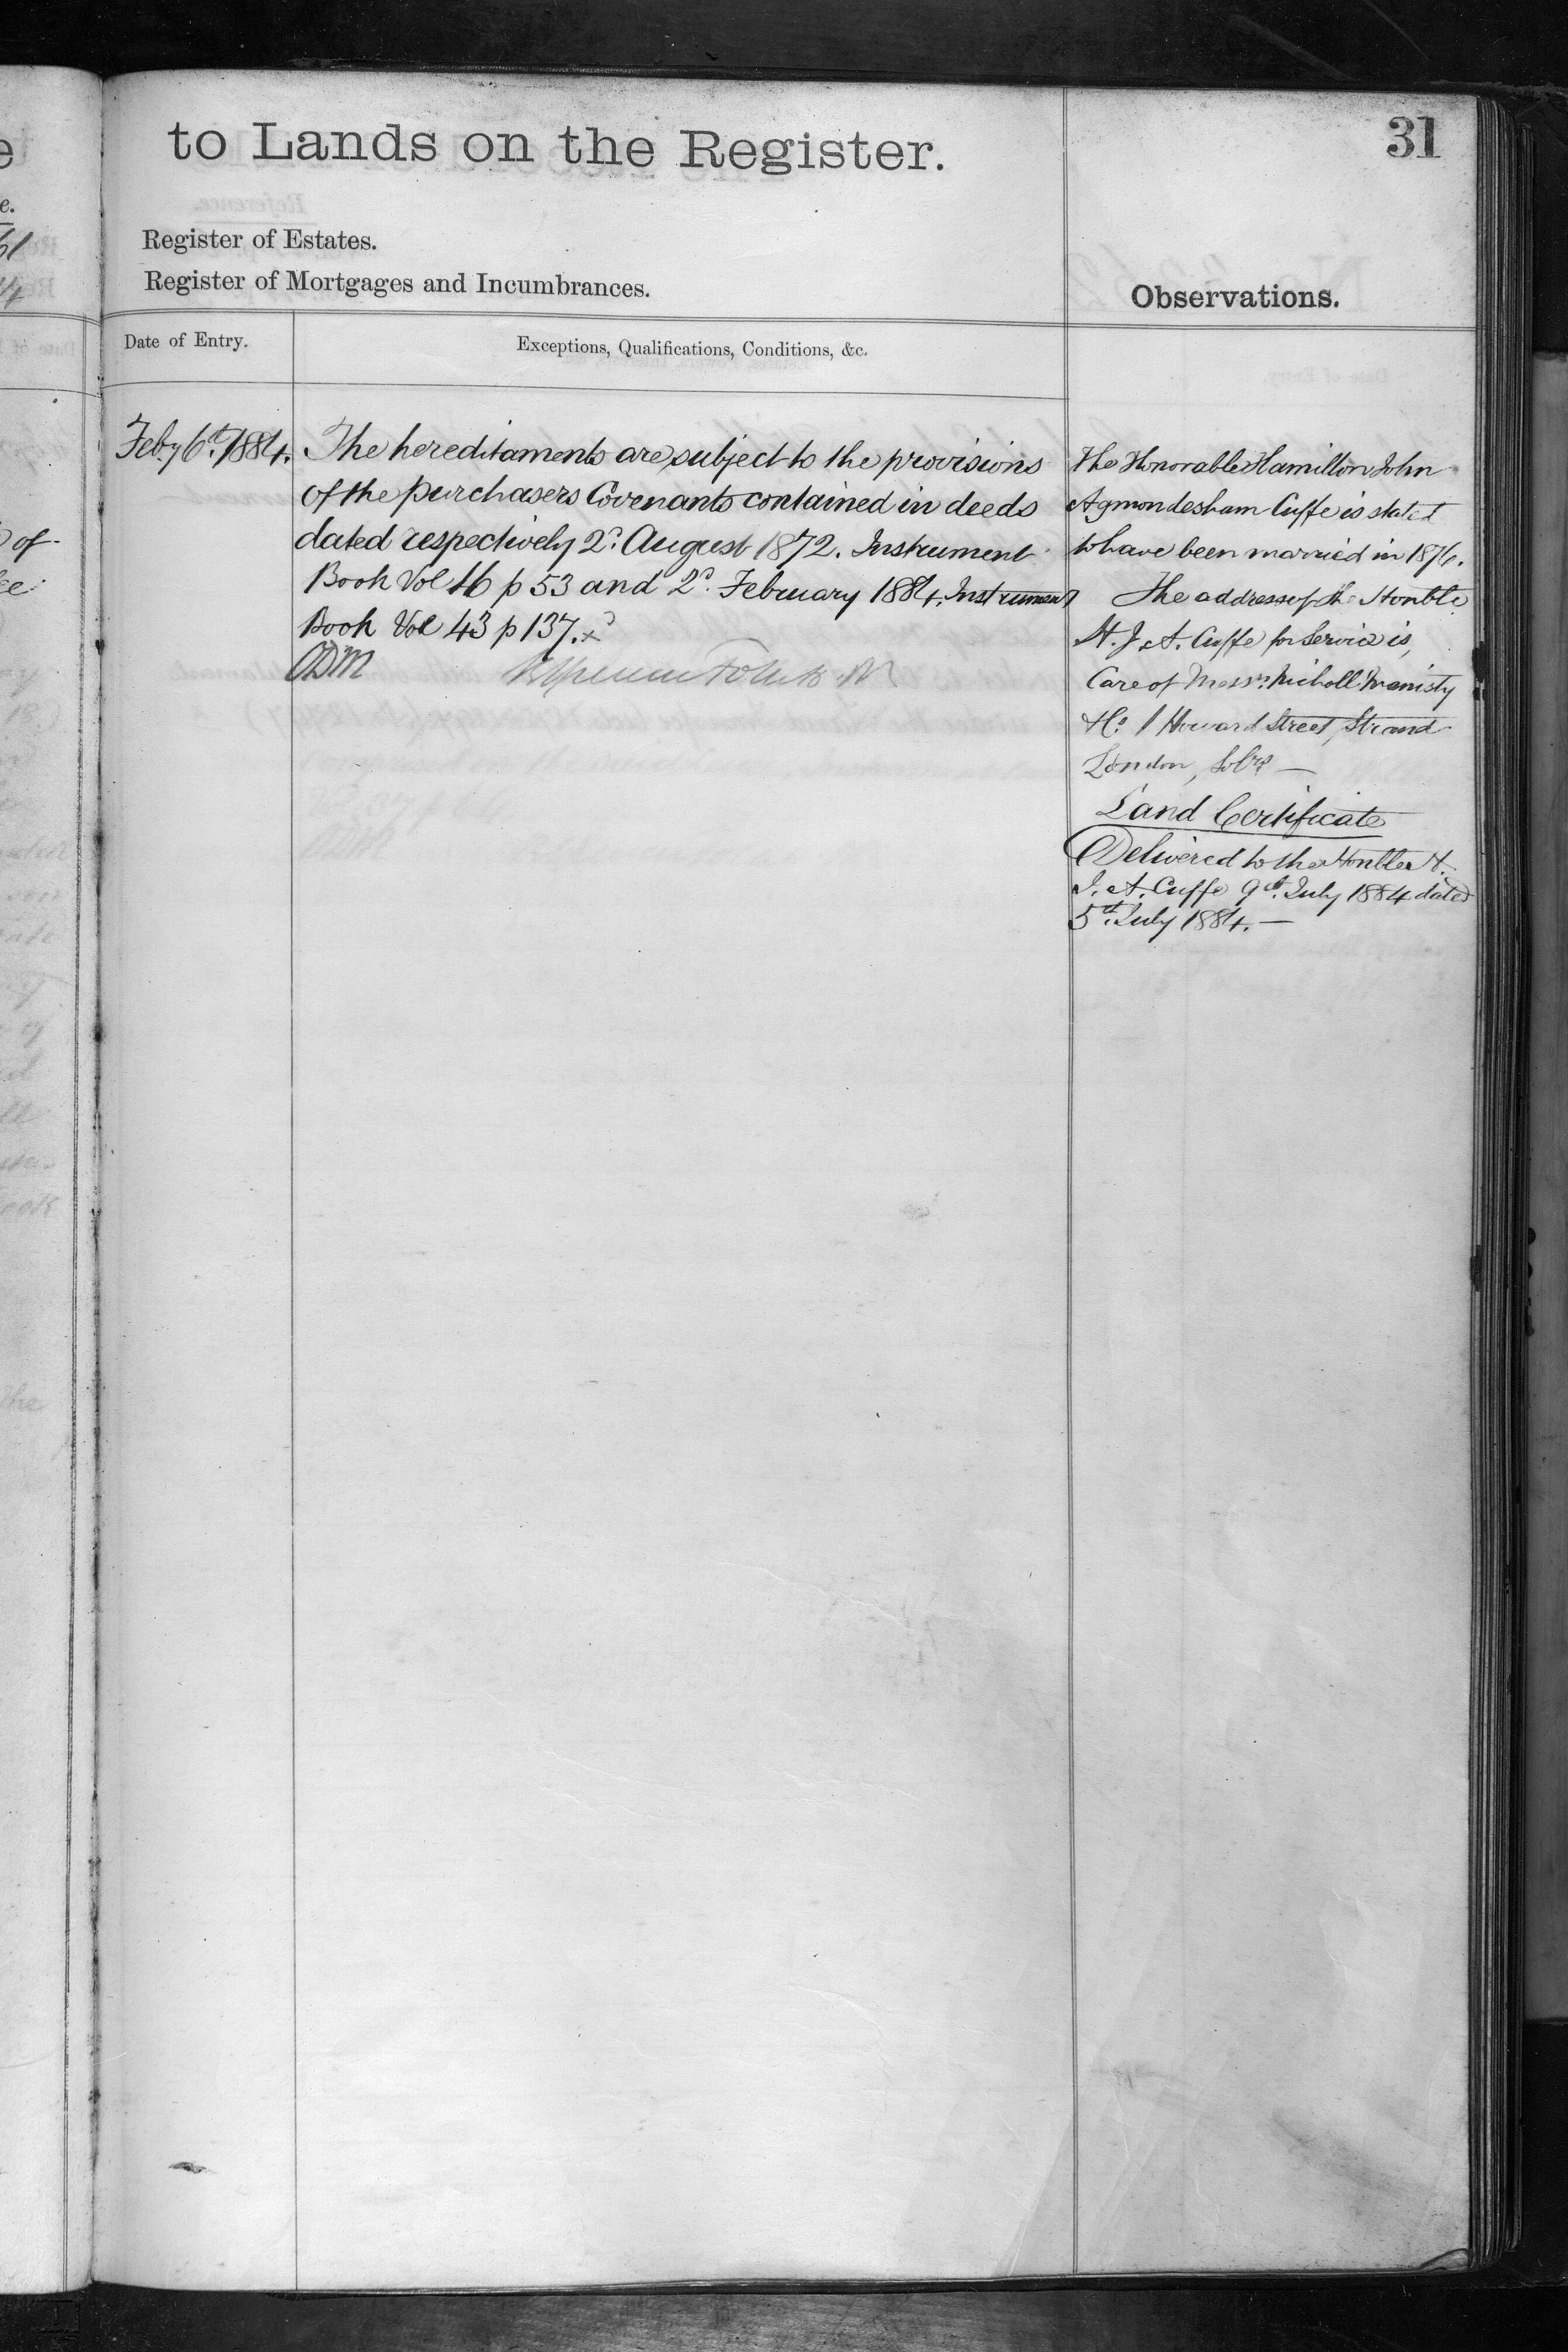 to Lands on the Register.
31
Register of Estates.
Register of Mortgages and Incumbrances.
Observations.
Date of Entry.
Exceptions, Qualifications, Conditions, &c.
Feby 6th 1884.
The hereditaments are subject to the provisions
of the purchasers Covenants contained in deeds
dated respectively 2d. August 1872. Instrument
Book Vol 16 p 53 and 2d. February 1884. Instrument
Book Vol 43 p 137.x
The Honorable Hamilton John
Agmondesham Cuffe is stated
to have been married in 1876.
The address of the Honble
H. J. A. Cuffe for Service is,
Care of Messrs. Nicholl Manisty
&Co. 1 Howard Street, Strand
London, Solrs —
Land Certificate
Delivered to the Honble H.
J. A. Cuffe 9th. July 1884 dated
5th. July 1884. —